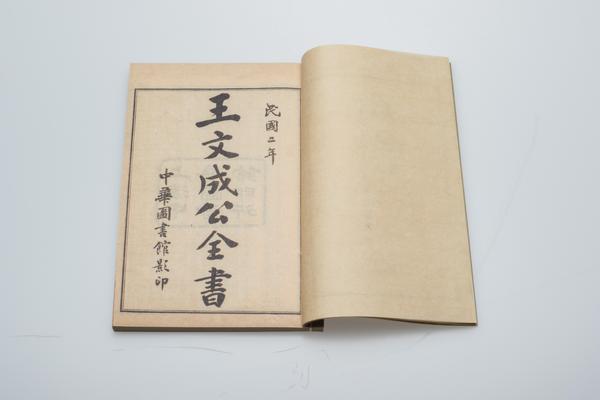 民國二年
王文成公全書
中華圖書館影印